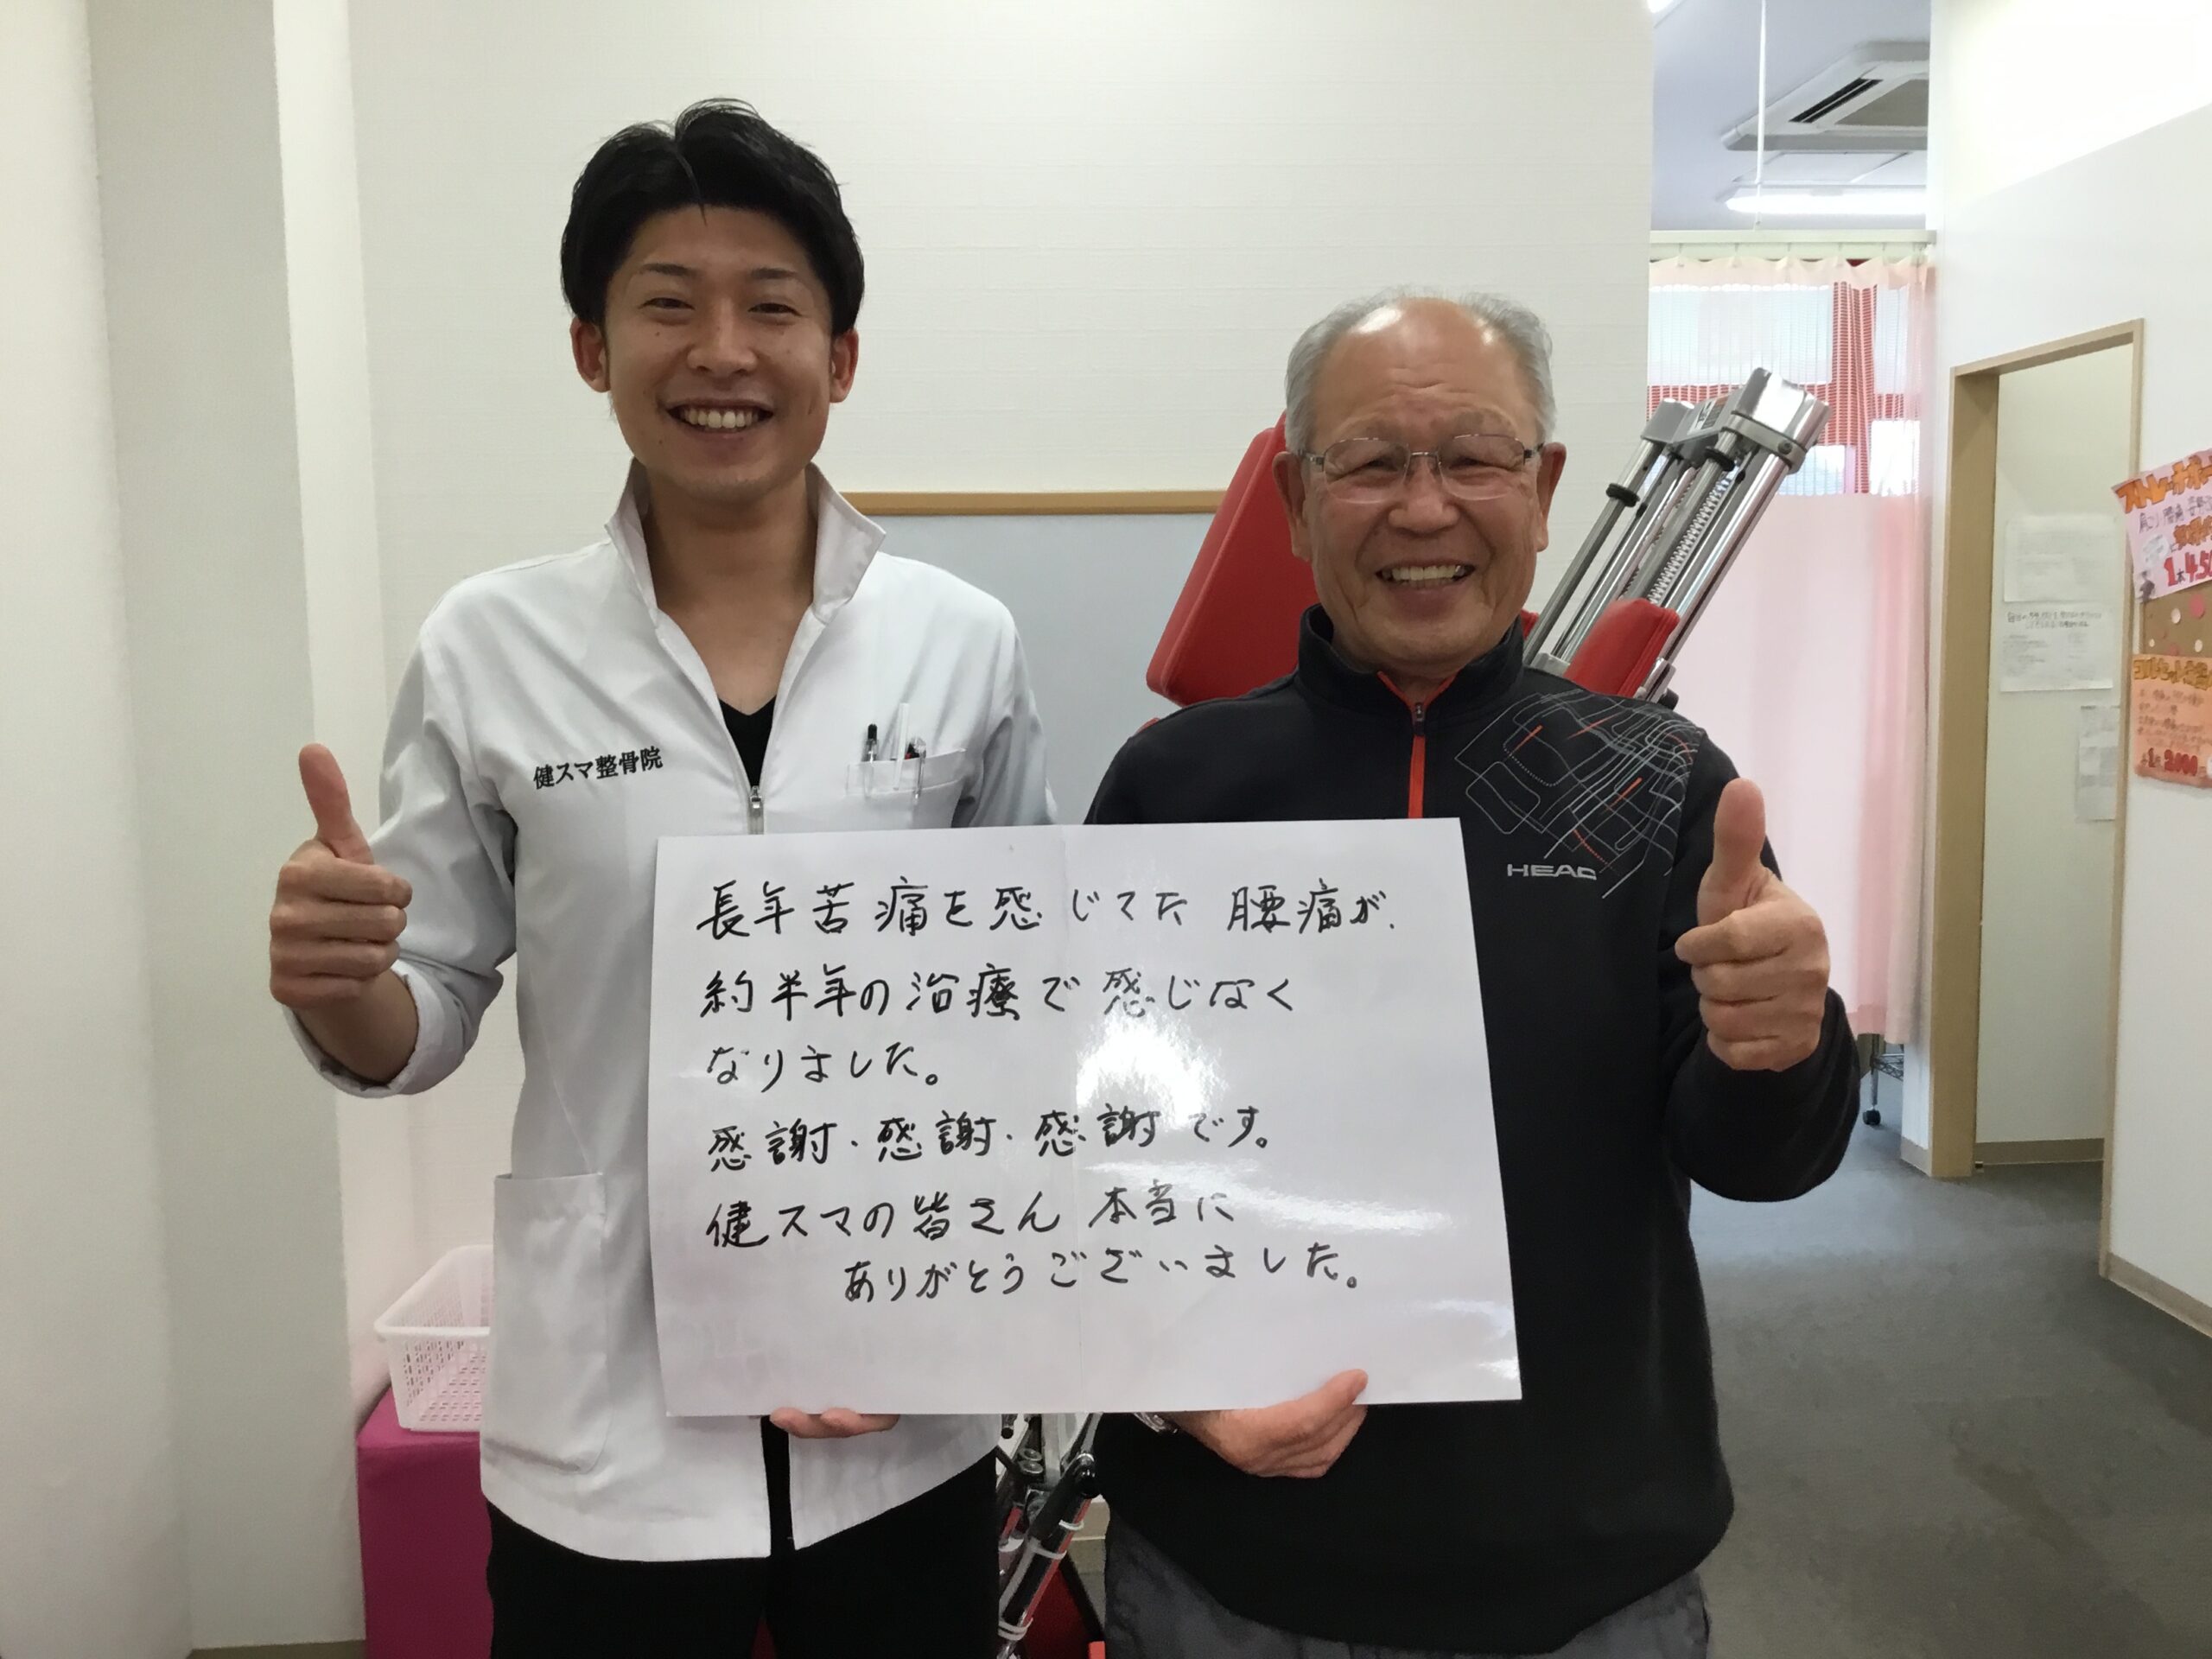 健スマ整骨院
HEAD
長年苦痛を感じてた 腰痛が、
約半年の治療で感じなく
なりました。
感謝・感謝・感謝です。
健スマの皆さん 本当に
ありがとうございました。